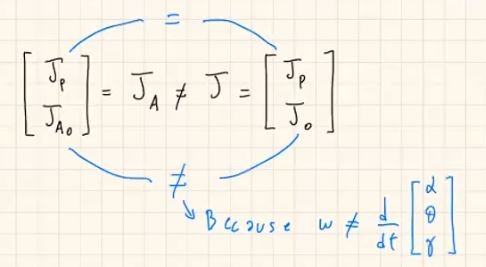 =
[ J_P ; J_{A_0} ] = J_A ≠ J = [ J_P ; J_0 ]
≠
Because w ≠ d/dt [ α ; θ ; γ ]